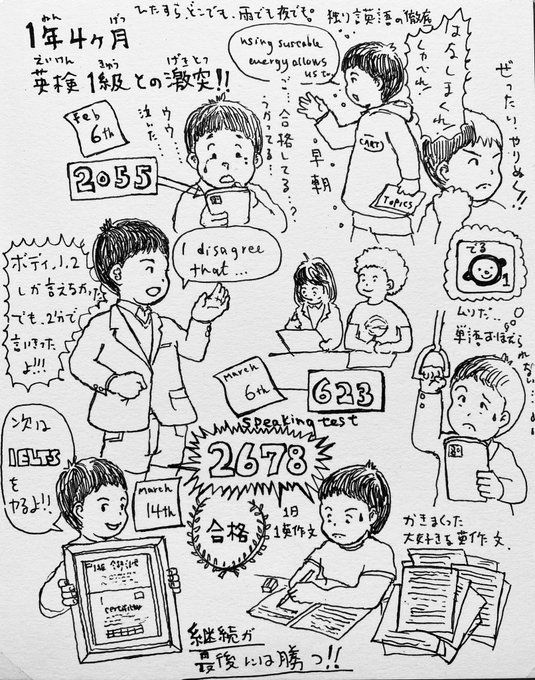 1年4ヶ月
ねん
げつ
英検1級との激突!!
えいけん
きゅう
げきとつ
ひたすら、どこでも、雨でも夜でも。
独り言英語の徹底
using
energy allows
us to
はなしまくれ
しゃべれ!
ぜったいやりぬく!!
Feb
6th
2055
ウウ…
泣いた…
ご…合格してる…?
うかってる…
早朝
CART
TOPICS
ボディ1,2と
しか言えなかった
でも、2分で
言いきった
よ!!!
I disagree
that...
でる
1
ムリだ…
単語おぼえら
れない…
March
6th
623
speaking test
2678
次は
IELTS
を
やるよ!!
March
14th
合格
1日
1英作文
かきまくった
大好きな英作文
1級 合格証
certificate
継続が
最後には勝つ!!